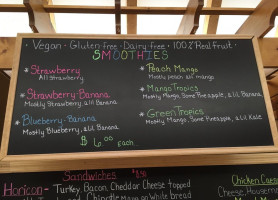 Vegan · Gluten-free · Dairy-free · 100% Real fruit
SMOOTHIES
Strawberry
All Strawberry
Strawberry-Banana
Mostly Strawberry, a lil Banana
Blueberry-Banana
Mostly Blueberry, a lil Banana
Peach Mango
Mostly peach, all mango
Mango Tropics
Mostly Mango, Some Pineapple, a lil Banana
Green Tropics
Mostly Mango, Some Pineapple, a lil Kale
$6.00 each
Sandwiches
Horicon - Turkey, Bacon, Cheddar Cheese topped
Chipotle Mayo on White bread
Chicken Caesar
Cheese, Housemade